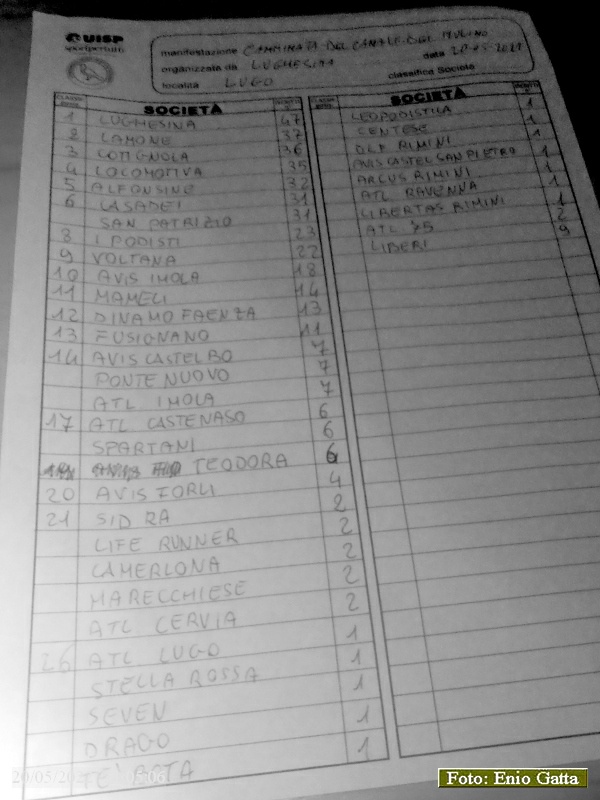 UISP
sportpertutti
manifestazione CAMMINATA DEL CANALE DEL MULINO
organizzata da LUGHESINA data
località LUGO classifica Società
SOCIETÀ
1 LUGHESINA 47
2 LAMONE 37
3 COTIGNOLA 36
4 LOCOMOTIVA 35
5 ALFONSINE 32
6 CASADEI 31
SAN PATRIZIO 31
8 I PODISTI 23
9 VOLTANA 22
10 AVIS IMOLA 18
11 MAMELI 14
12 DINAMO FAENZA 13
13 FUSIGNANO 11
14 AVIS CASTEL BO 7
PONTE NUOVO 7
ATL IMOLA 7
17 ATL CASTENASO 6
SPARTANI 6
TEODORA 6
20 AVIS FORLI 4
21 SID RA 2
LIFE RUNNER 2
CAMERLONA 2
MARECCHIESE 2
ATL CERVIA 2
26 ATL LUGO 1
STELLA ROSSA 1
SEVEN 1
DRAGO 1
1
SOCIETÀ
LEOPODISTICA 1
CENTESE 1
DLF RIMINI 1
AVIS CASTEL SAN PIETRO 1
ARCUS RIMINI 1
ATL RAVENNA 1
LIBERTAS RIMINI 1
ATL 75 2
LIBERI 9
Foto: Enio Gatta